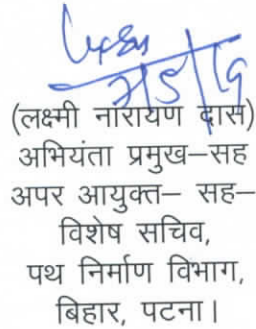 (लक्ष्मी नारायण दास)
अभियंता प्रमुख–सह
अपर आयुक्त– सह–
विशेष सचिव,
पथ निर्माण विभाग,
बिहार, पटना।